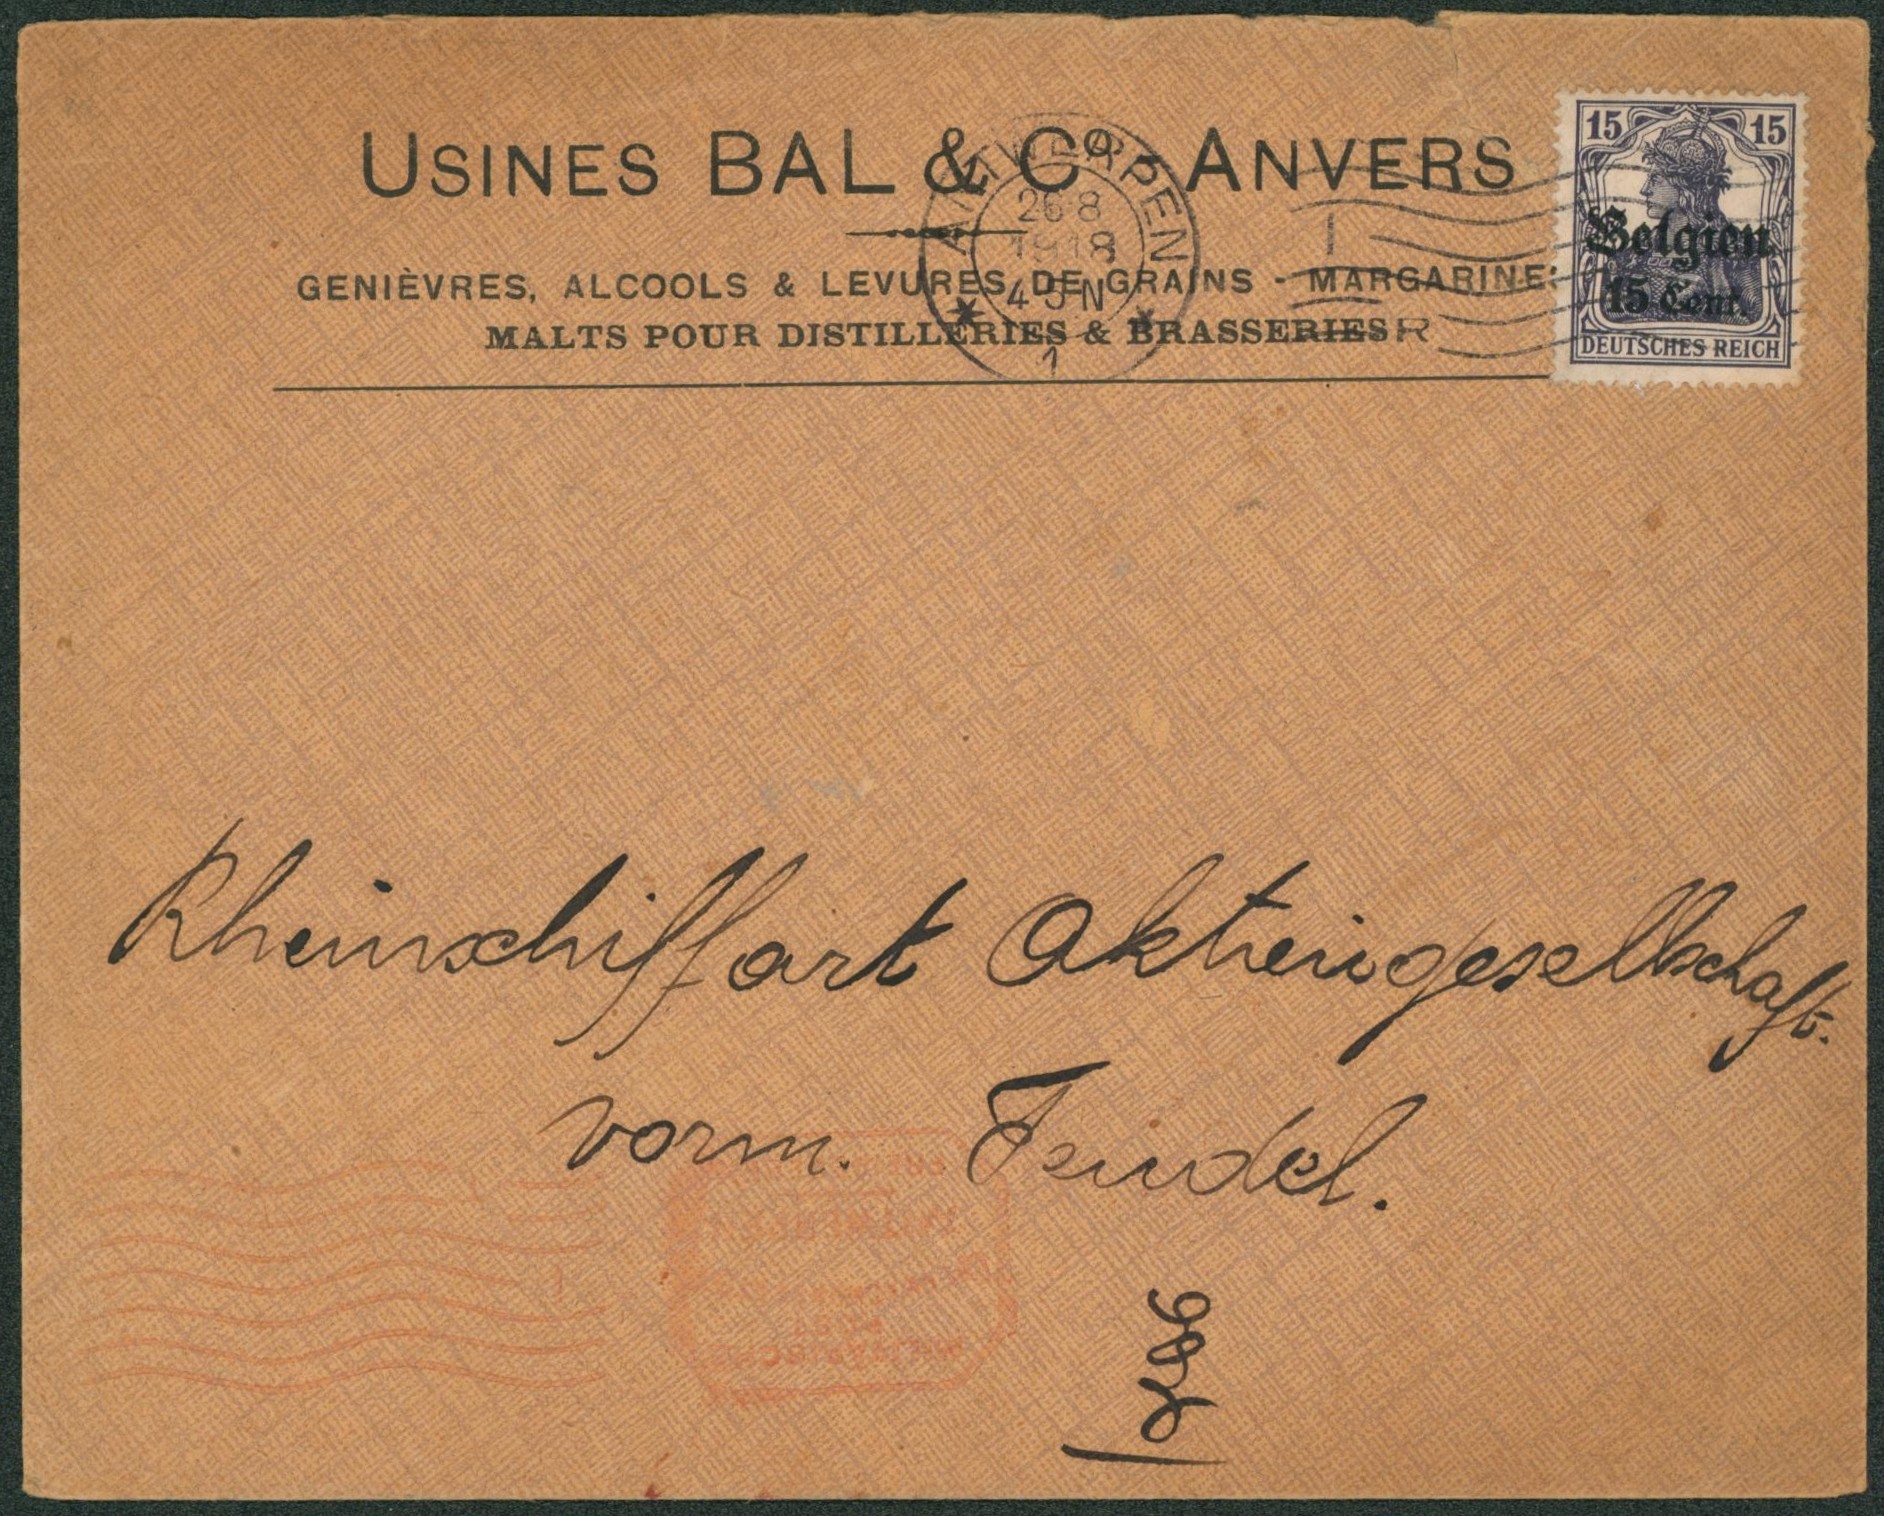 USINES BAL & Cº ANVERS
GENIÈVRES, ALCOOLS & LEVURES DE GRAINS - MARGARINES
MALTS POUR DISTILLERIES & BRASSERIES
ANTWERPEN
26 8
1918
4-5 N
1
15 15
Belgien
15 Cent.
DEUTSCHES REICH
Rheinschiffart Aktiengesellschaft.
vorm. Fendel.